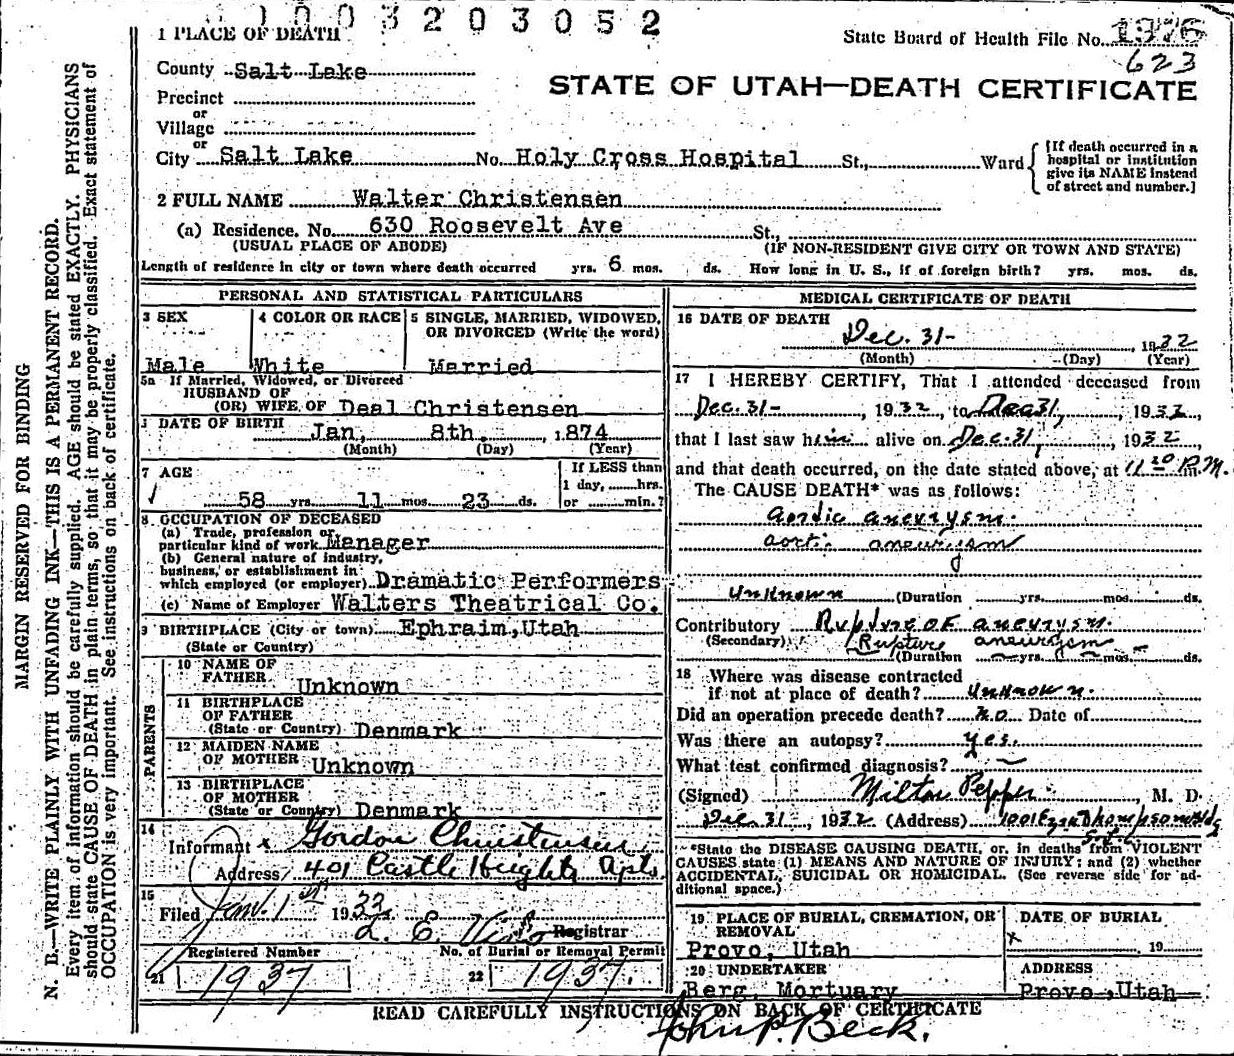 1003203052
1 PLACE OF DEATH
State Board of Health File No. 1976
623
County Salt Lake
STATE OF UTAH—DEATH CERTIFICATE
Precinct
or
Village
or
City Salt Lake No. Holy Cross Hospital St., Ward
[If death occurred in a hospital or institution give its NAME instead of street and number.]
2 FULL NAME Walter Christensen
(a) Residence. No. 630 Roosevelt Ave St.,
(USUAL PLACE OF ABODE) (IF NON-RESIDENT GIVE CITY OR TOWN AND STATE)
Length of residence in city or town where death occurred yrs. 6 mos. ds. How long in U. S., if of foreign birth? yrs. mos. ds.
PERSONAL AND STATISTICAL PARTICULARS
3 SEX 4 COLOR OR RACE 5 SINGLE, MARRIED, WIDOWED,
OR DIVORCED (Write the word)
Male White Married
5a If Married, Widowed, or Divorced
HUSBAND OF
(OR) WIFE OF Deal Christensen
DATE OF BIRTH Jan, 8th. , 1874
(Month) (Day) (Year)
7 AGE If LESS than
1 day, hrs.
58 yrs. 11 mos. 23 ds. or min.?
8 OCCUPATION OF DECEASED
(a) Trade, profession or
particular kind of work Manager
(b) General nature of industry,
business, or establishment in
which employed (or employer) Dramatic Performers
(c) Name of Employer Walters Theatrical Co.
9 BIRTHPLACE (City or town) Ephraim, Utah
(State or Country)
PARENTS
10 NAME OF
FATHER Unknown
11 BIRTHPLACE
OF FATHER
(State or Country) Denmark
12 MAIDEN NAME
OF MOTHER Unknown
13 BIRTHPLACE
OF MOTHER
(State or Country) Denmark
14
Informant Gordon Christensen
Address 401 Castle Heights Apts.
15
Filed Jan. 1st 1933
L. E. Registrar
Registered Number No. of Burial or Removal Permit
21 1937 22 1937.
MEDICAL CERTIFICATE OF DEATH
16 DATE OF DEATH
Dec. 31- , 1932
(Month) (Day) (Year)
17 I HEREBY CERTIFY, That I attended deceased from
Dec. 31- , 1932, to Dec 31, 1932,
that I last saw him alive on Dec. 31, 1932,
and that death occurred, on the date stated above, at 11 20 P.M.
The CAUSE DEATH* was as follows:
aordic aneurysm.
aortic aneurysm
Unknown (Duration yrs. mos. ds.
Contributory Rupture of aneurysm.
(Secondary) Rupture aneurysm
(Duration yrs. mos. ds.
18 Where was disease contracted
if not at place of death? Unknown.
Did an operation precede death? no. Date of
Was there an autopsy? yes.
What test confirmed diagnosis?
(Signed) Milton Pepper , M. D.
Dec 31, 1932 (Address) 1001
*State the DISEASE CAUSING DEATH, or, in deaths from VIOLENT
CAUSES state (1) MEANS AND NATURE OF INJURY; and (2) whether
ACCIDENTAL, SUICIDAL OR HOMICIDAL. (See reverse side for ad-
ditional space.)
19 PLACE OF BURIAL, CREMATION, OR DATE OF BURIAL
REMOVAL
Provo, Utah x 19
20 UNDERTAKER ADDRESS
Berg Mortuary Provo, Utah
READ CAREFULLY INSTRUCTIONS ON BACK OF CERTIFICATE
John P. Beck.
MARGIN RESERVED FOR BINDING
N. B.—WRITE PLAINLY WITH UNFADING INK—THIS IS A PERMANENT RECORD.
Every item of information should be carefully supplied. AGE should be stated EXACTLY. PHYSICIANS
should state CAUSE OF DEATH in plain terms, so that it may be properly classified. Exact statement of
OCCUPATION is very important. See instructions on back of certificate.